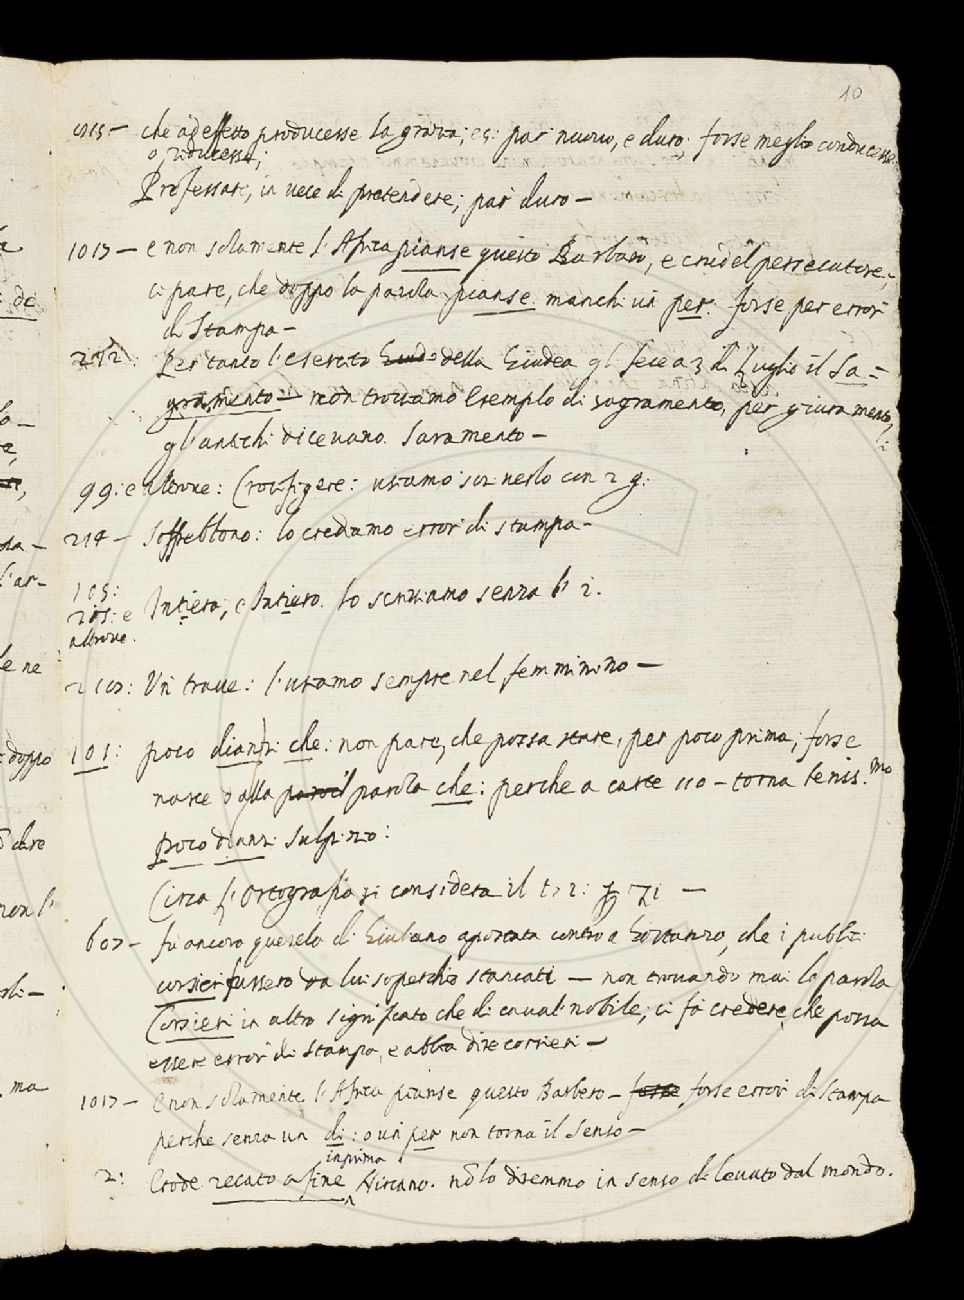 10
1015 – che ad effetto producesse la grazia; ci par nuovo, e duro; forse meglio conducesse
o, riducesse;
Professare, in vece di pretendere; par duro –
1017 – e non solamente l'Africa pianse questo Barbaro, e crudel persecutore;
ci pare, che doppo la parola pianse. manchi un per. forse per error
di Stampa –
212: Per tanto l'esercito della Giudea gli fece a 3 di Luglio il Sa=
gramento – non troviamo esemplo di sagramento, per giuramento,
gl'antichi dicevano. Saramento –
99: e altrove: Crocifiggere: usiamo scriverlo con 2 g:
214 – Soffrebbono: lo crediamo error di stampa –
105:
205: e Intiera, e Intiero. lo scriviamo senza l' i.
altrove.
210: Un trave: l'usiamo sempre nel femminino –
101: poco dianzi che: non pare, che possa stare, per poco prima, forse
nasce dalla parola che: perche a carte 110 – torna beniss.mo
poco dianzi Sulpizio:
Circa l'Ortografia si considera il
607 – fu ancora querela di Giuliano aportata contro a Gostanzo, che i publici
corsieri fussero da lui soperchio stancati – non trovando mai la parola
Corsieri in altro significato che di caval nobile; ci fà credere, che possa
essere error di Stampa, e abbia dire corrieri –
1017 – e non solamente l'Africa pianse questo Barbero – forse error di Stampa
perche senza un di: o un per non torna il senso –
inprima
2: Erode recato a fine Hircano. nō lo diremmo in senso di levato dal mondo.